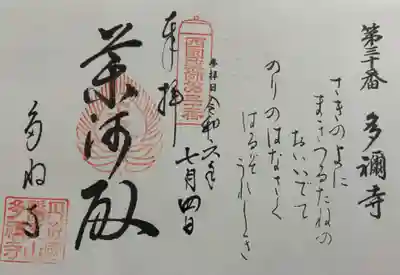 第三十番 多禰寺
さきのよに
まきつるたねの
おいいでて
のりのはなさく
はるぞうれしき
参拝日 令和六年七月四日
奉拝
薬師殿
多祢寺